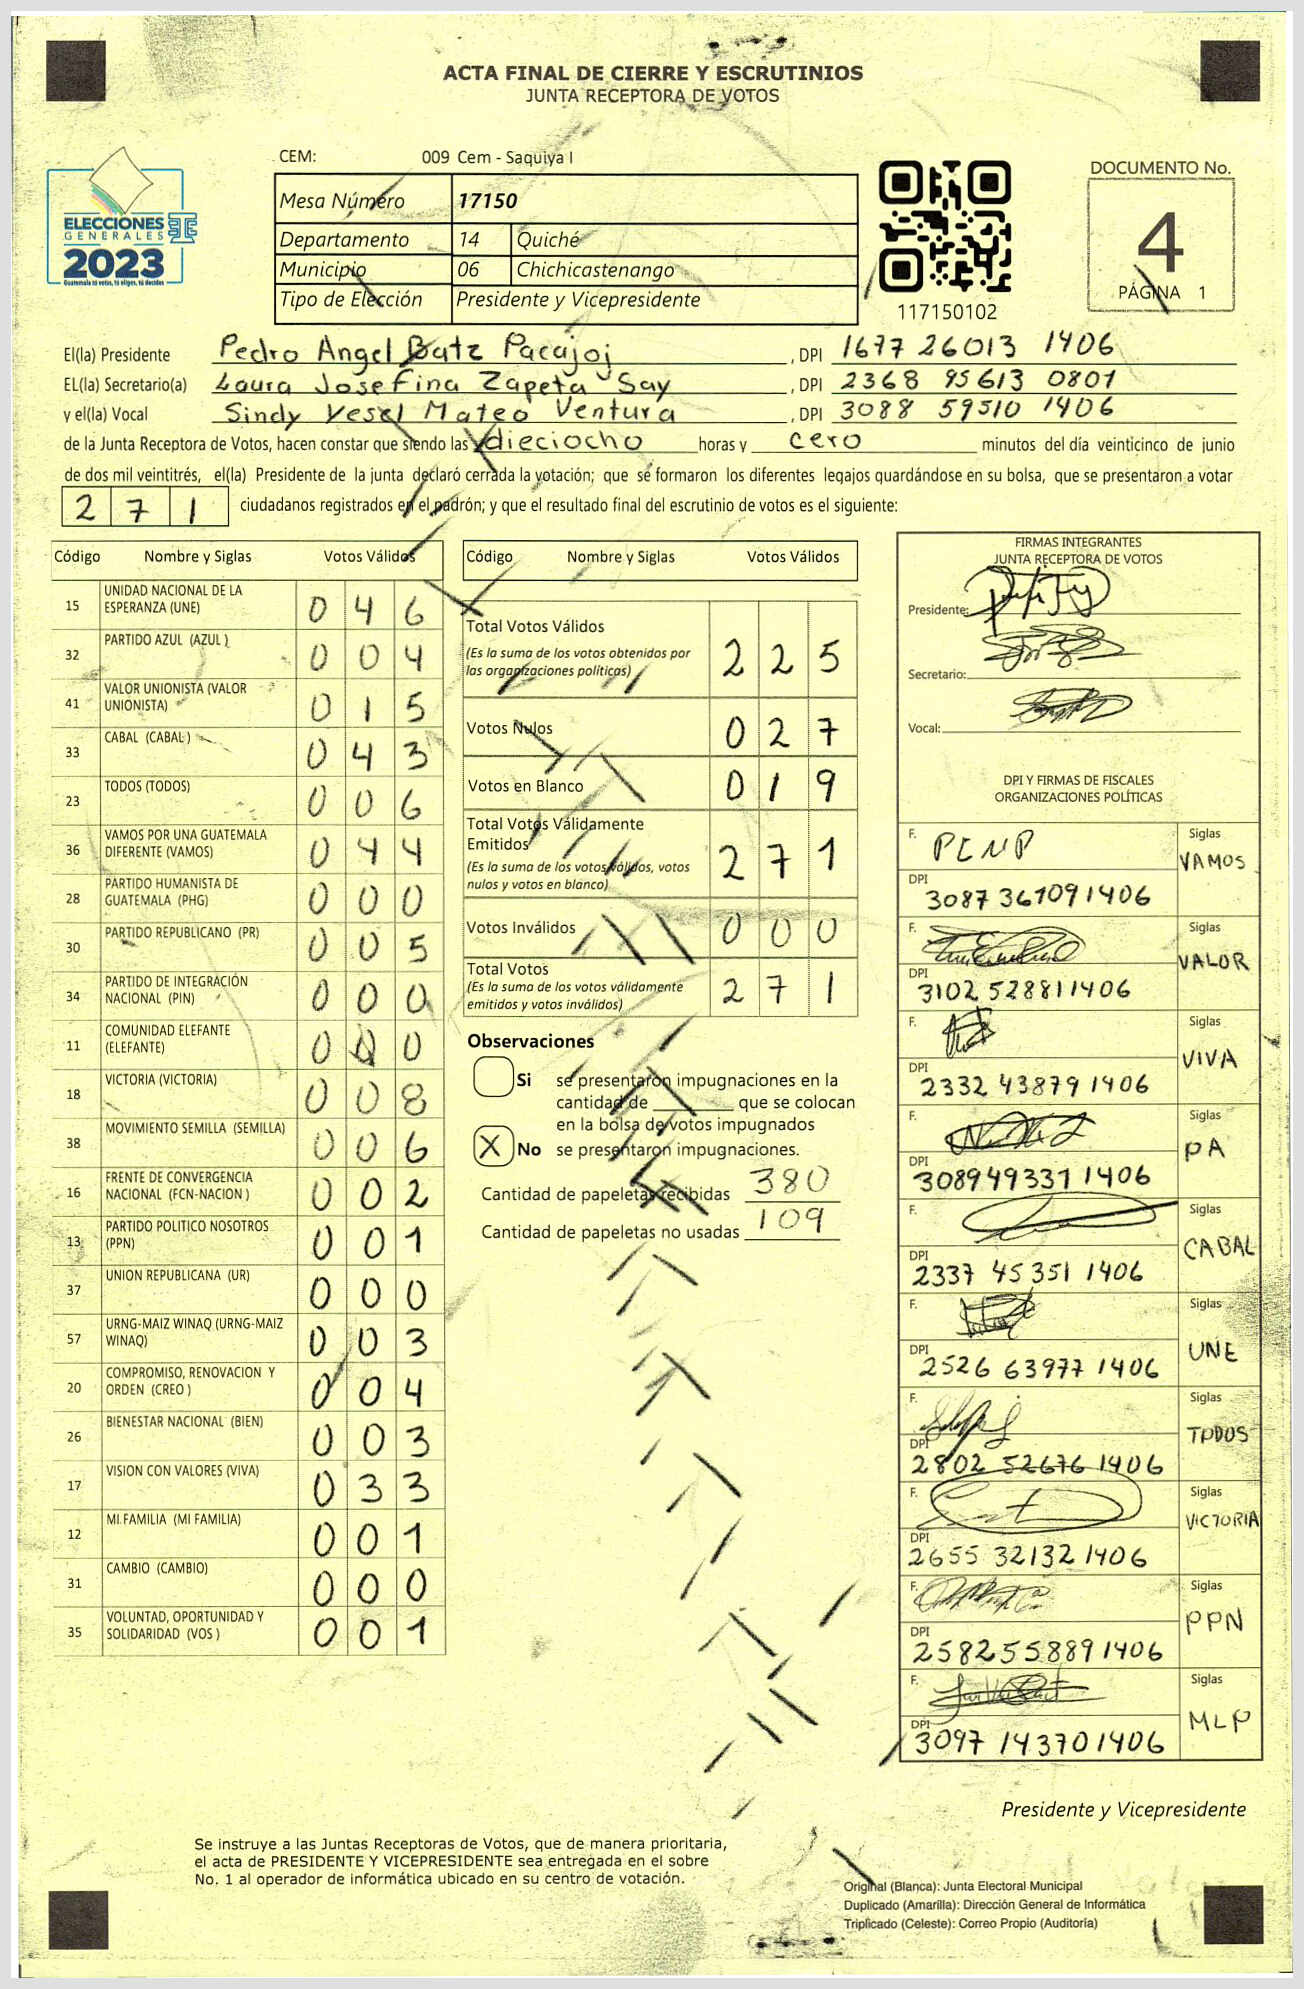 ACTA FINAL DE CIERRE Y ESCRUTINIOS
JUNTA RECEPTORA DE VOTOS
CEM: 009 Cem - Saquiya I
ELECCIONES
GENERALES
2023
Guatemala tú votas, tú eliges, tú decides
Mesa Número 17150
Departamento 14 Quiché
Municipio 06 Chichicastenango
Tipo de Elección Presidente y Vicepresidente
117150102
DOCUMENTO No.
4
PÁGINA 1
El(la) Presidente Pedro Angel Batz Pacajoj , DPI 1677 26013 1406
EL(la) Secretario(a) Laura Josefina Zapeta Say , DPI 2368 95613 0801
y el(la) Vocal Sindy Yesel Mateo Ventura , DPI 3088 59510 1406
de la Junta Receptora de Votos, hacen constar que siendo las dieciocho horas y cero minutos del día veinticinco de junio
de dos mil veintitrés, el(la) Presidente de la junta declaró cerrada la votación; que se formaron los diferentes legajos guardándose en su bolsa, que se presentaron a votar
271 ciudadanos registrados en el padrón; y que el resultado final del escrutinio de votos es el siguiente:
Código Nombre y Siglas Votos Válidos
15 UNIDAD NACIONAL DE LA ESPERANZA (UNE) 0 4 6
32 PARTIDO AZUL (AZUL ) 0 0 4
41 VALOR UNIONISTA (VALOR UNIONISTA) 0 1 5
33 CABAL (CABAL ) 0 4 3
23 TODOS (TODOS) 0 0 6
36 VAMOS POR UNA GUATEMALA DIFERENTE (VAMOS) 0 4 4
28 PARTIDO HUMANISTA DE GUATEMALA (PHG) 0 0 0
30 PARTIDO REPUBLICANO (PR) 0 0 5
34 PARTIDO DE INTEGRACIÓN NACIONAL (PIN) 0 0 0
11 COMUNIDAD ELEFANTE (ELEFANTE) 0 0 0
18 VICTORIA (VICTORIA) 0 0 8
38 MOVIMIENTO SEMILLA (SEMILLA) 0 0 6
16 FRENTE DE CONVERGENCIA NACIONAL (FCN-NACION ) 0 0 2
13 PARTIDO POLITICO NOSOTROS (PPN) 0 0 1
37 UNION REPUBLICANA (UR) 0 0 0
57 URNG-MAIZ WINAQ (URNG-MAIZ WINAQ) 0 0 3
20 COMPROMISO, RENOVACION Y ORDEN (CREO ) 0 0 4
26 BIENESTAR NACIONAL (BIEN) 0 0 3
17 VISION CON VALORES (VIVA) 0 3 3
12 MI FAMILIA (MI FAMILIA) 0 0 1
31 CAMBIO (CAMBIO) 0 0 0
35 VOLUNTAD, OPORTUNIDAD Y SOLIDARIDAD (VOS ) 0 0 1
Código Nombre y Siglas Votos Válidos
Total Votos Válidos 2 2 5
(Es la suma de los votos obtenidos por
las organizaciones políticas)
Votos Nulos 0 2 7
Votos en Blanco 0 1 9
Total Votos Válidamente
Emitidos 2 7 1
(Es la suma de los votos válidos, votos
nulos y votos en blanco)
Votos Inválidos 0 0 0
Total Votos 2 7 1
(Es la suma de los votos válidamente
emitidos y votos inválidos)
Observaciones
Si se presentaron impugnaciones en la
cantidad de ________ que se colocan
en la bolsa de votos impugnados
X No se presentaron impugnaciones.
Cantidad de papeletas recibidas 380
Cantidad de papeletas no usadas 109
FIRMAS INTEGRANTES
JUNTA RECEPTORA DE VOTOS
Presidente:
Secretario:
Vocal:
DPI Y FIRMAS DE FISCALES
ORGANIZACIONES POLÍTICAS
F. Siglas VAMOS
DPI 3087 36709 1406
F. Siglas VALOR
DPI 3102 52881 1406
F. Siglas VIVA
DPI 2332 43879 1406
F. Siglas PA
DPI 3089 49337 1406
F. Siglas CABAL
DPI 2337 45351 1406
F. Siglas UNE
DPI 2526 63977 1406
F. Siglas TODOS
DPI 2802 52676 1406
F. Siglas VICTORIA
DPI 2655 32132 1406
F. Siglas PPN
DPI 2582 55889 1406
F. Siglas MLP
DPI 3097 14370 1406
Presidente y Vicepresidente
Se instruye a las Juntas Receptoras de Votos, que de manera prioritaria,
el acta de PRESIDENTE Y VICEPRESIDENTE sea entregada en el sobre
No. 1 al operador de informática ubicado en su centro de votación.
Original (Blanca): Junta Electoral Municipal
Duplicado (Amarilla): Dirección General de Informática
Triplicado (Celeste): Correo Propio (Auditoría)